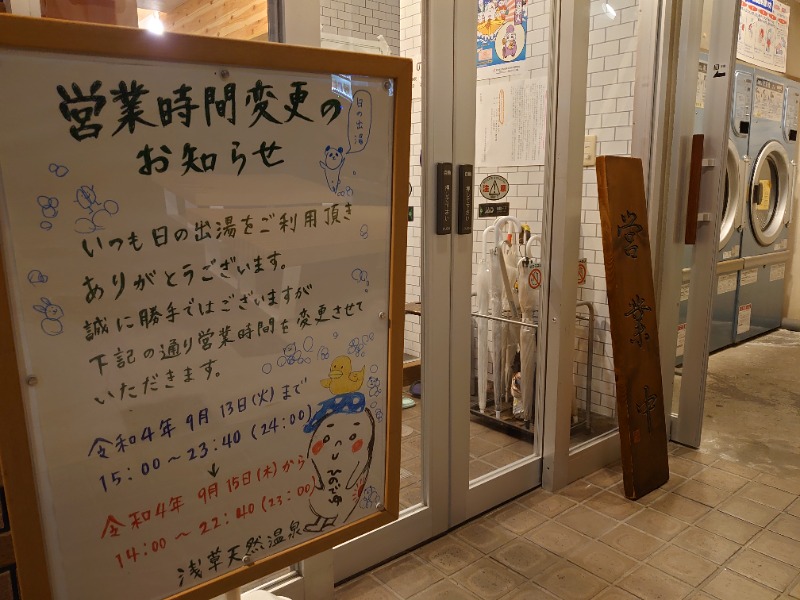 営業時間変更の
お知らせ
日の出湯
いつも日の出湯をご利用頂き
ありがとうございます。
誠に勝手ではございますが
下記の通り営業時間を変更させて
いただきます。
令和4年 9月13日(火)まで
15:00～23:40(24:00)
↓
令和4年 9月15日(木)から
14:00～22:40(23:00)
浅草天然温泉
ひのでゆ
注意
営業中